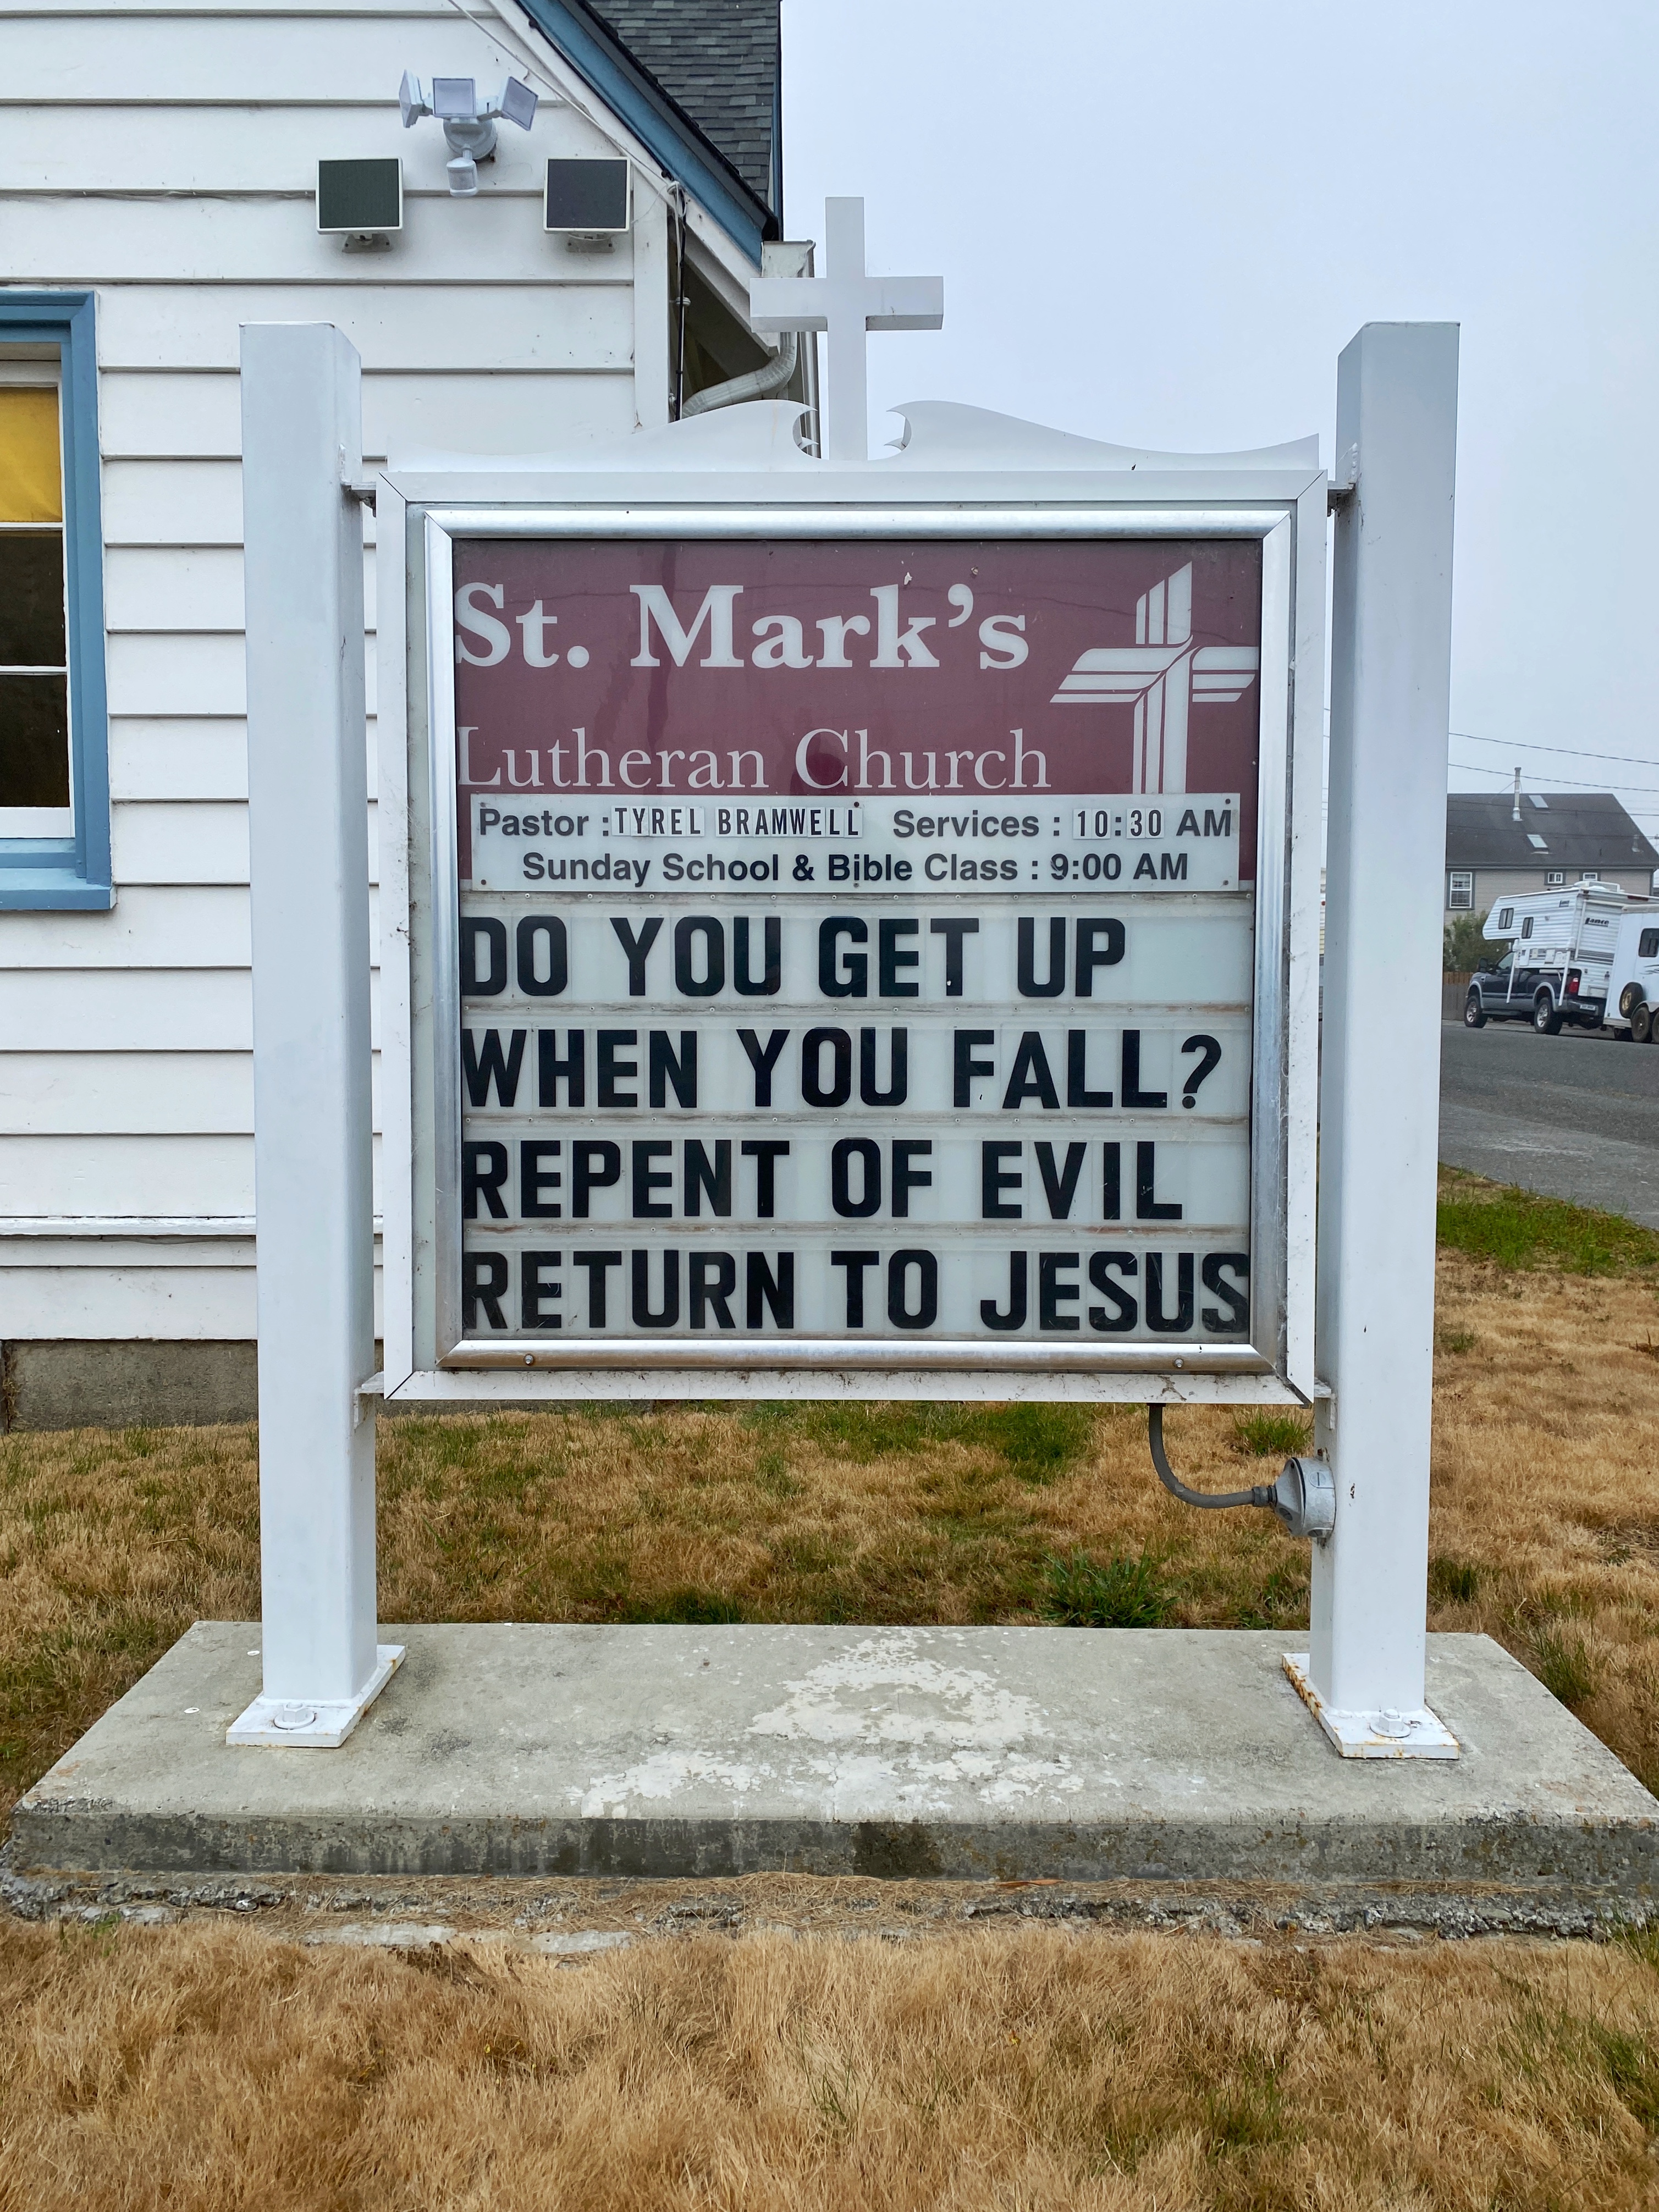 St. Mark's
Lutheran Church
Pastor : TYREL BRAMWELL Services : 10:30 AM
Sunday School & Bible Class : 9:00 AM
DO YOU GET UP
WHEN YOU FALL?
REPENT OF EVIL
RETURN TO JESUS
Lance